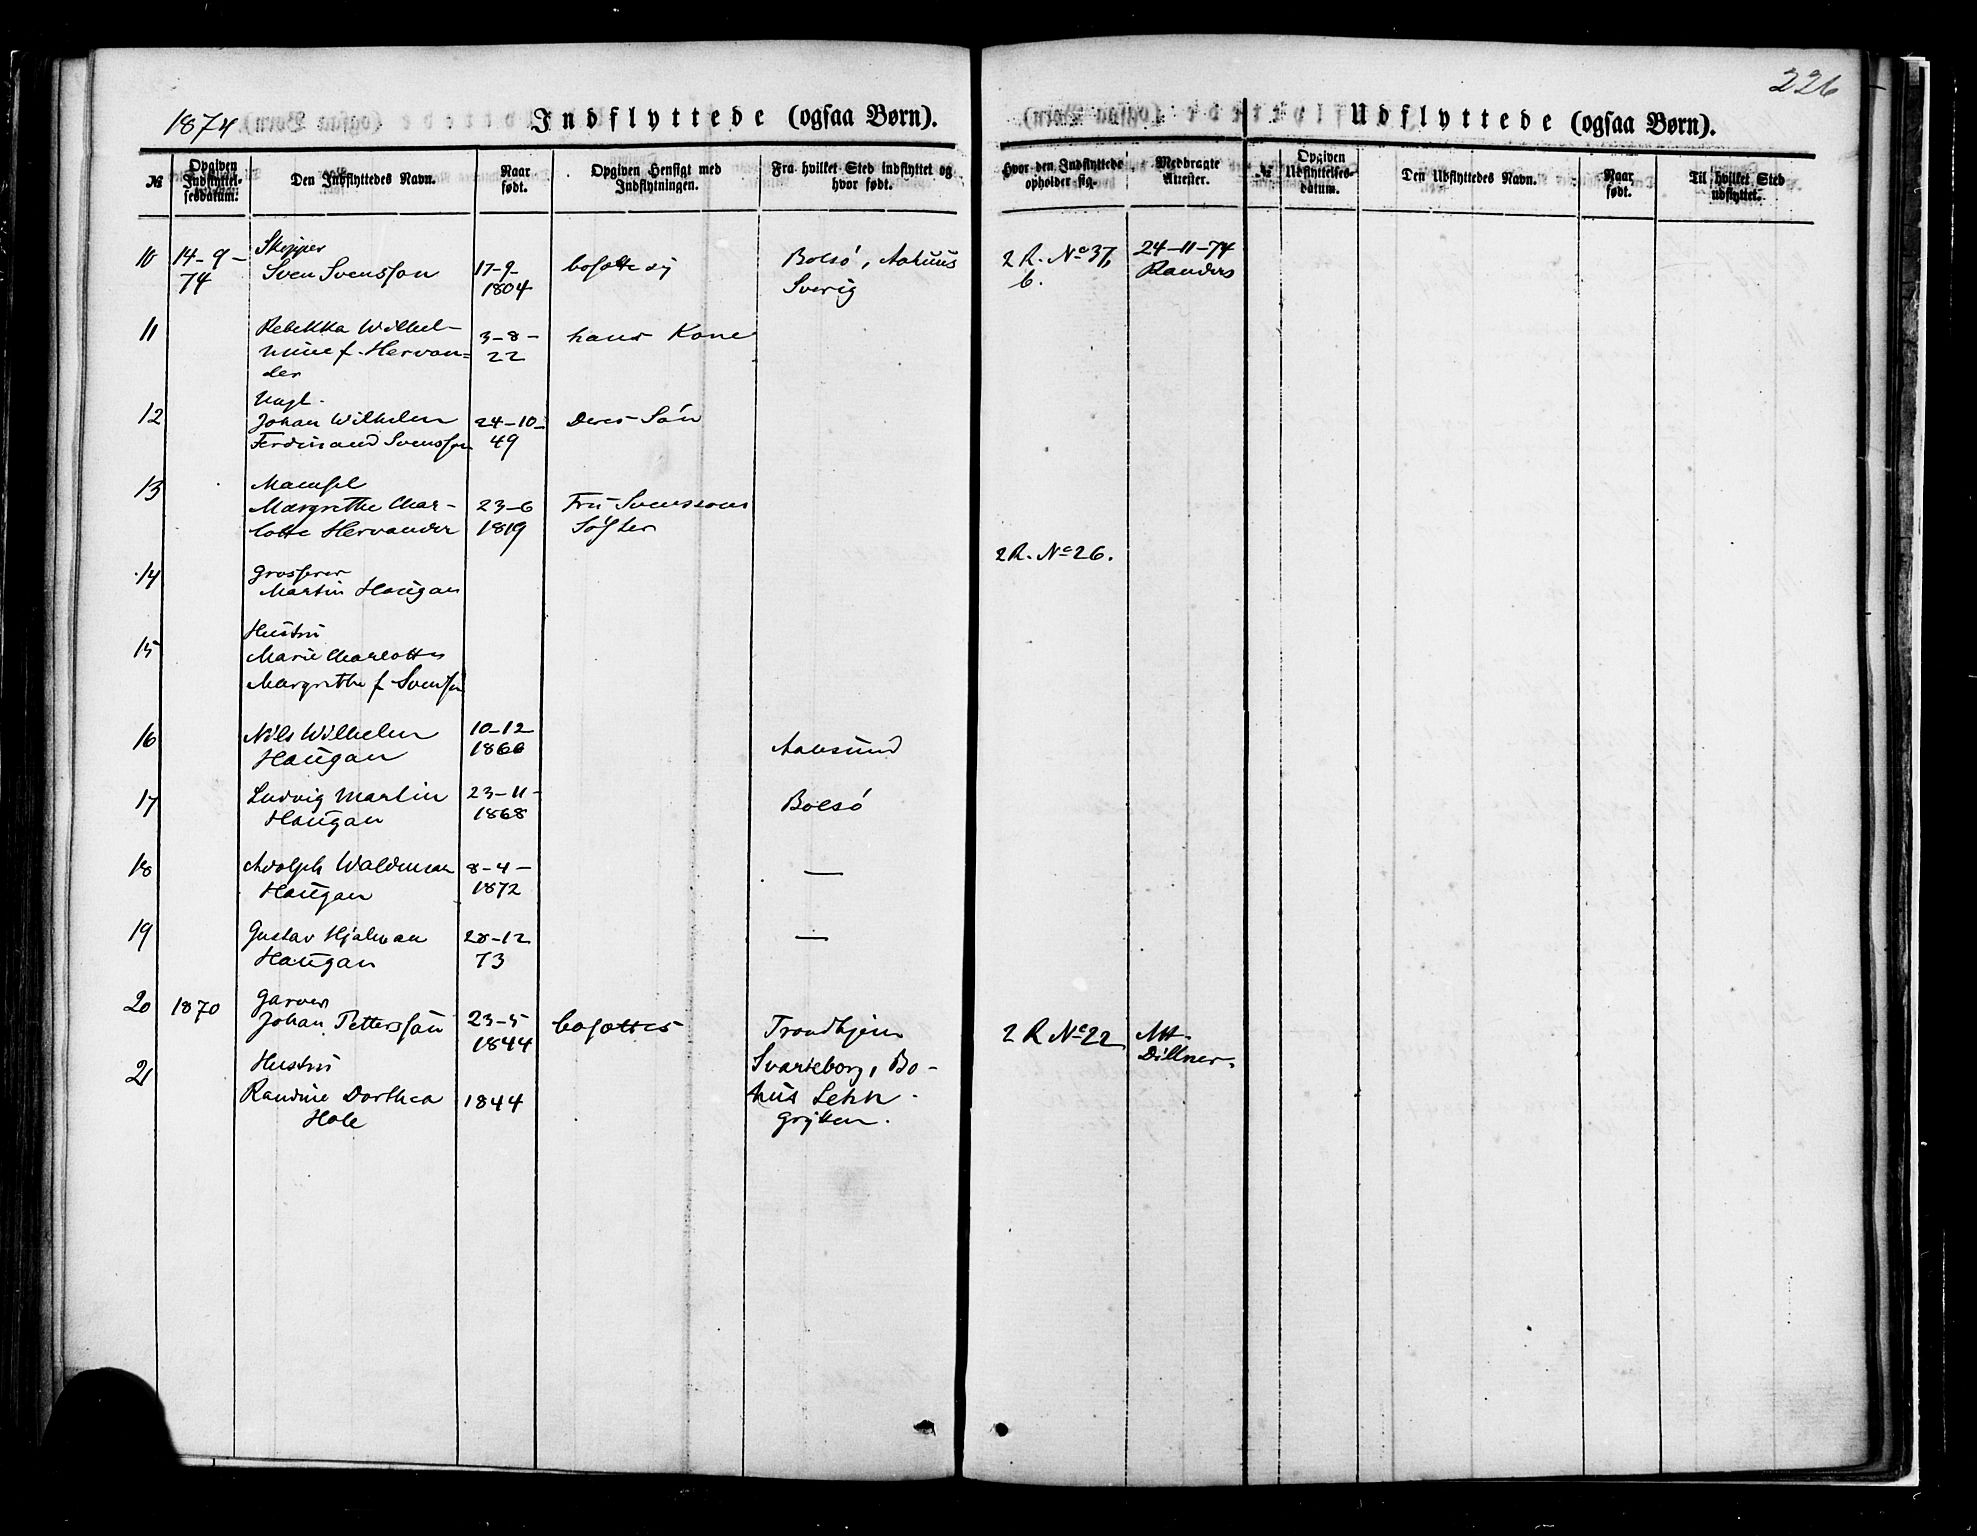 226
1874
Indflyttede (ogsaa Børn).
Udflyttede (ogsaa Børn).
№
Opgiven Indflyttelsesdatum.
Den Indflyttedes Navn.
Naar født.
Opgiven Hensigt med Indflytningen.
Fra hvilket Sted indflyttet og hvor født.
Hvor den Indflyttede opholder sig.
Medbragte Attester.
№
Opgiven Udflyttelsesdatum.
Den Udflyttedes Navn.
Naar født.
Til hvilket Sted udflyttet.
10 14-9- Skipper
74 Sven Svensson 17-9- bosætte sig Bolsö, Aahuus 2 R. No 37, 24-11-74
1804 Sverig b. Randers
11 Rebekka Wilhel- 3-8- hans Kone
mine f. Hervan= 22
der
12 Ungk.
Johan Wilhelm 24-10- Deres Sön
Ferdinand Svensson 49
13 Mamsel
Margrethe Char- 23-6 Fru Svenssons
lotte Hervander 1819 Söster
2 R. No 26.
14 Grosserer
Martin Haugan
15 Hustru
Marie Charlotte
Margrethe f. Svensson
16 Nils Wilhelm 10-12
Haugan 1866 Aalesund
17 Ludvig Martin 23-11-
Haugan 1868 Bolsö
18 Adolph Waldemar 8-4- —
Haugan 1872
19 Gustav Hjalmar 28-12 —
Haugan 73
20 1870 Garver
Johan Pettersson 23-5 bosættes Trondhjem 2 R No 22 Att.
1844 Dillner.
21 Hustru Svarteborg, Bo-
Randine Dorthea 1844 hus Lehn.
Hole Grytten.